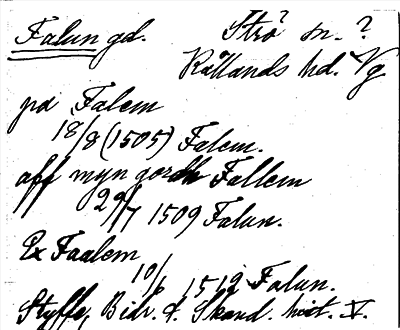 Falun gd. Strö sn. ?
Kållands hd. Vg
på Falem
18/8 (1505) Falem.
aff myn gordh Fallem
29/7 1509 Falun.
Ex Faalem
10/6 1512 Falun.
Styffe, Bidr. t. Skand. hist. V.